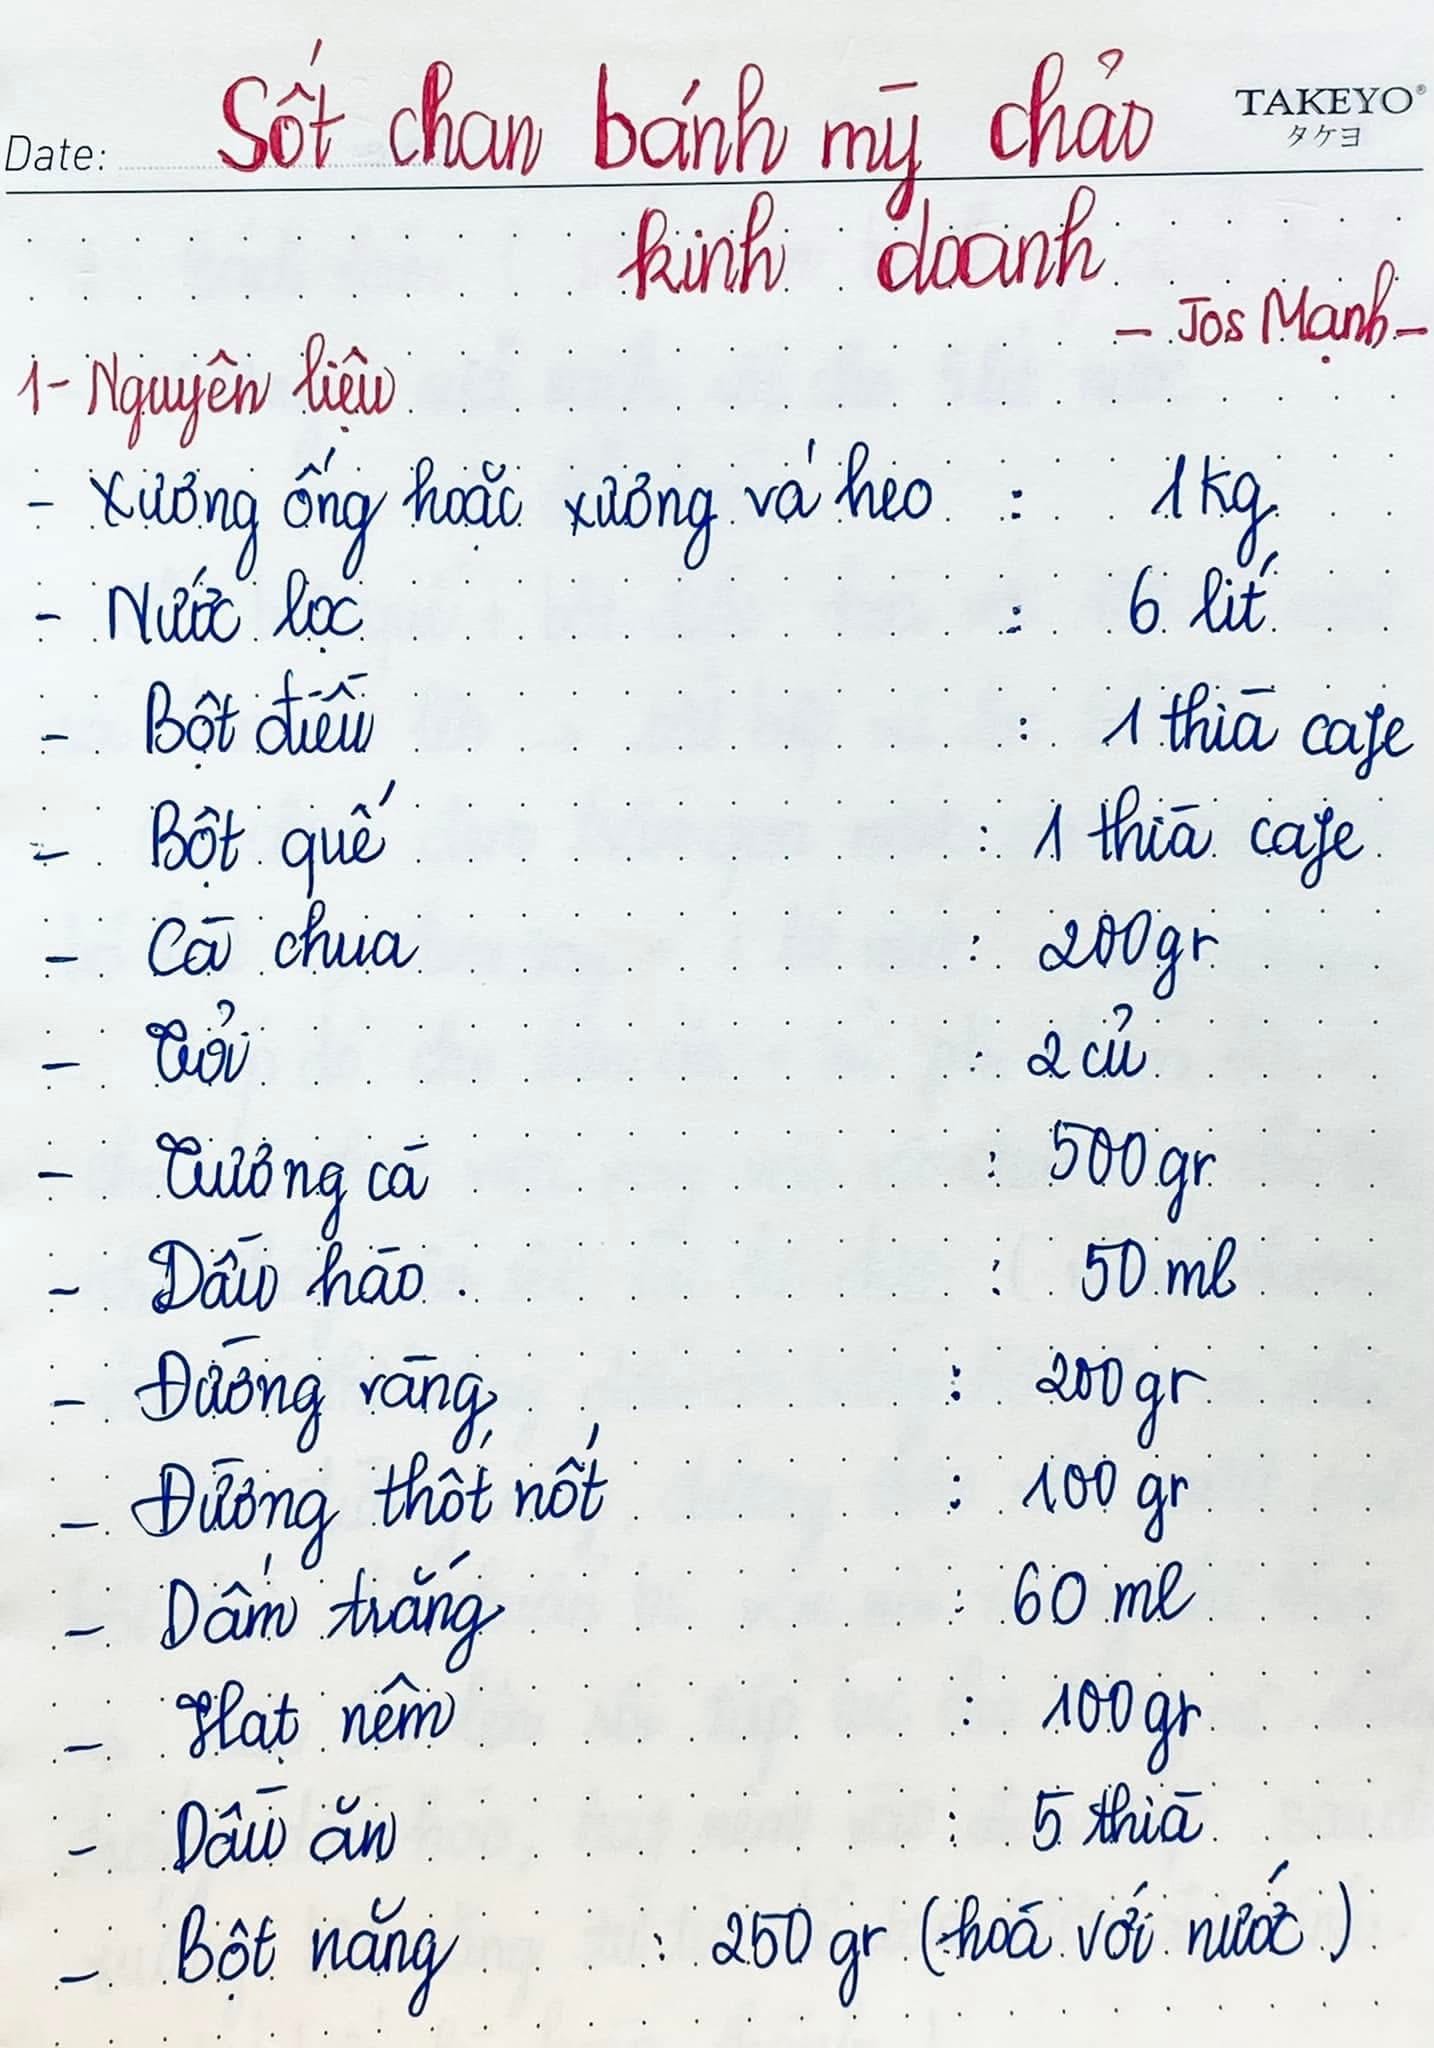 Sốt chan bánh mỳ chảo
TAKEYO®
タケヨ
Date:
kinh doanh
- Jos Mạnh -
1- Nguyên liệu
- Xương ống hoặc xương vá heo : 1kg
- Nước lọc : 6 lít
- Bột điều : 1 thìa cafe
- Bột quế : 1 thìa cafe
- Cà chua : 200gr
- Tỏi : 2 củ
- Tương cà : 500gr
- Dầu hào : 50 ml
- Đường vàng : 200gr
- Đường thốt nốt : 100 gr
- Dấm trắng : 60 ml
- Hạt nêm : 100gr
- Dầu ăn : 5 thìa
- Bột năng : 250 gr (hoà với nước)